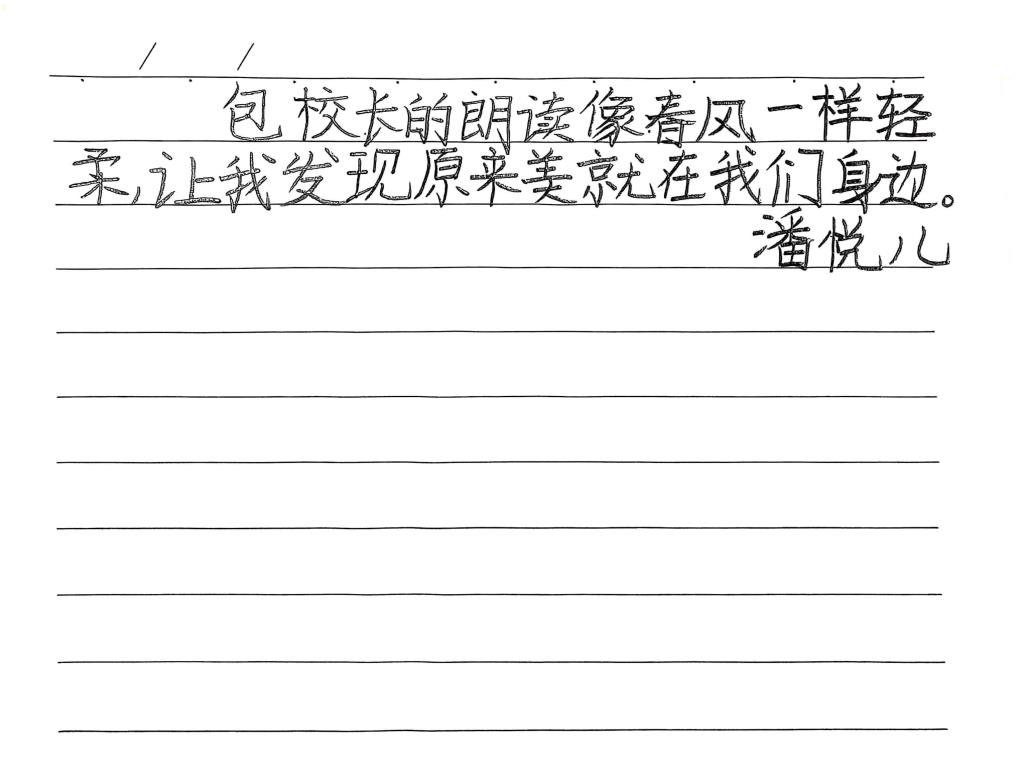 包校长的朗读像春风一样轻
柔,让我发现原来美就在我们身边。
潘悦儿